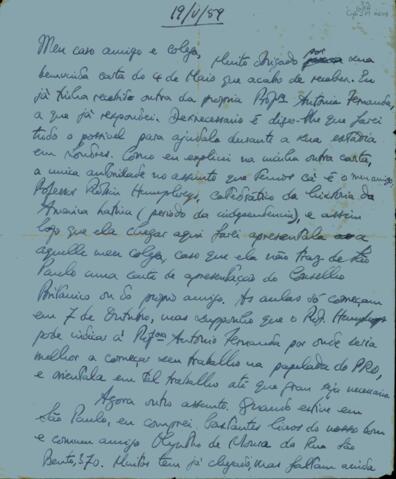 19/V/59
Meu caro amigo e colega, Muito obrigado por sua
benvinda carta do 4 de Maio que acabo de receber. Eu
já tinha recebido outra da própria Profra Antonia Fernanda,
a que já respondei. Desnecessario é dizer-lhe que farei
tudo o possivel para ajudala durante a sua estadia
em Londres. Como eu expliei na minha outra carta,
a unica autoridade no assunto que temos cá é o meu amigo,
Professor Robin Humphreys, catedrático da história da
America Latina (periodo da independencia), e assim
logo que ela chegar aqui farei apresentala
aquelle meu colega, caso que ela não traz de São
Paulo uma carta de apresentação do Conselho
Britanico ou do próprio amigo. As aulas só começam
em 7 de Outubro, mas suppanho que o Prof. Humphreys
pode indicar á Profra Antonia Fernanda por onde seria
melhor a começar seu trabalho na papelada do PRO,
e orientala em tal trabalho até que fran seja necessario
Agora outro assunto. Quando estive em
São Paulo, eu comprei bastantes livros do nosso bom
e commum amigo Olyntho de Moura da Rua São
Bento, 370. Muitos tem já chegado, mas faltam ainda